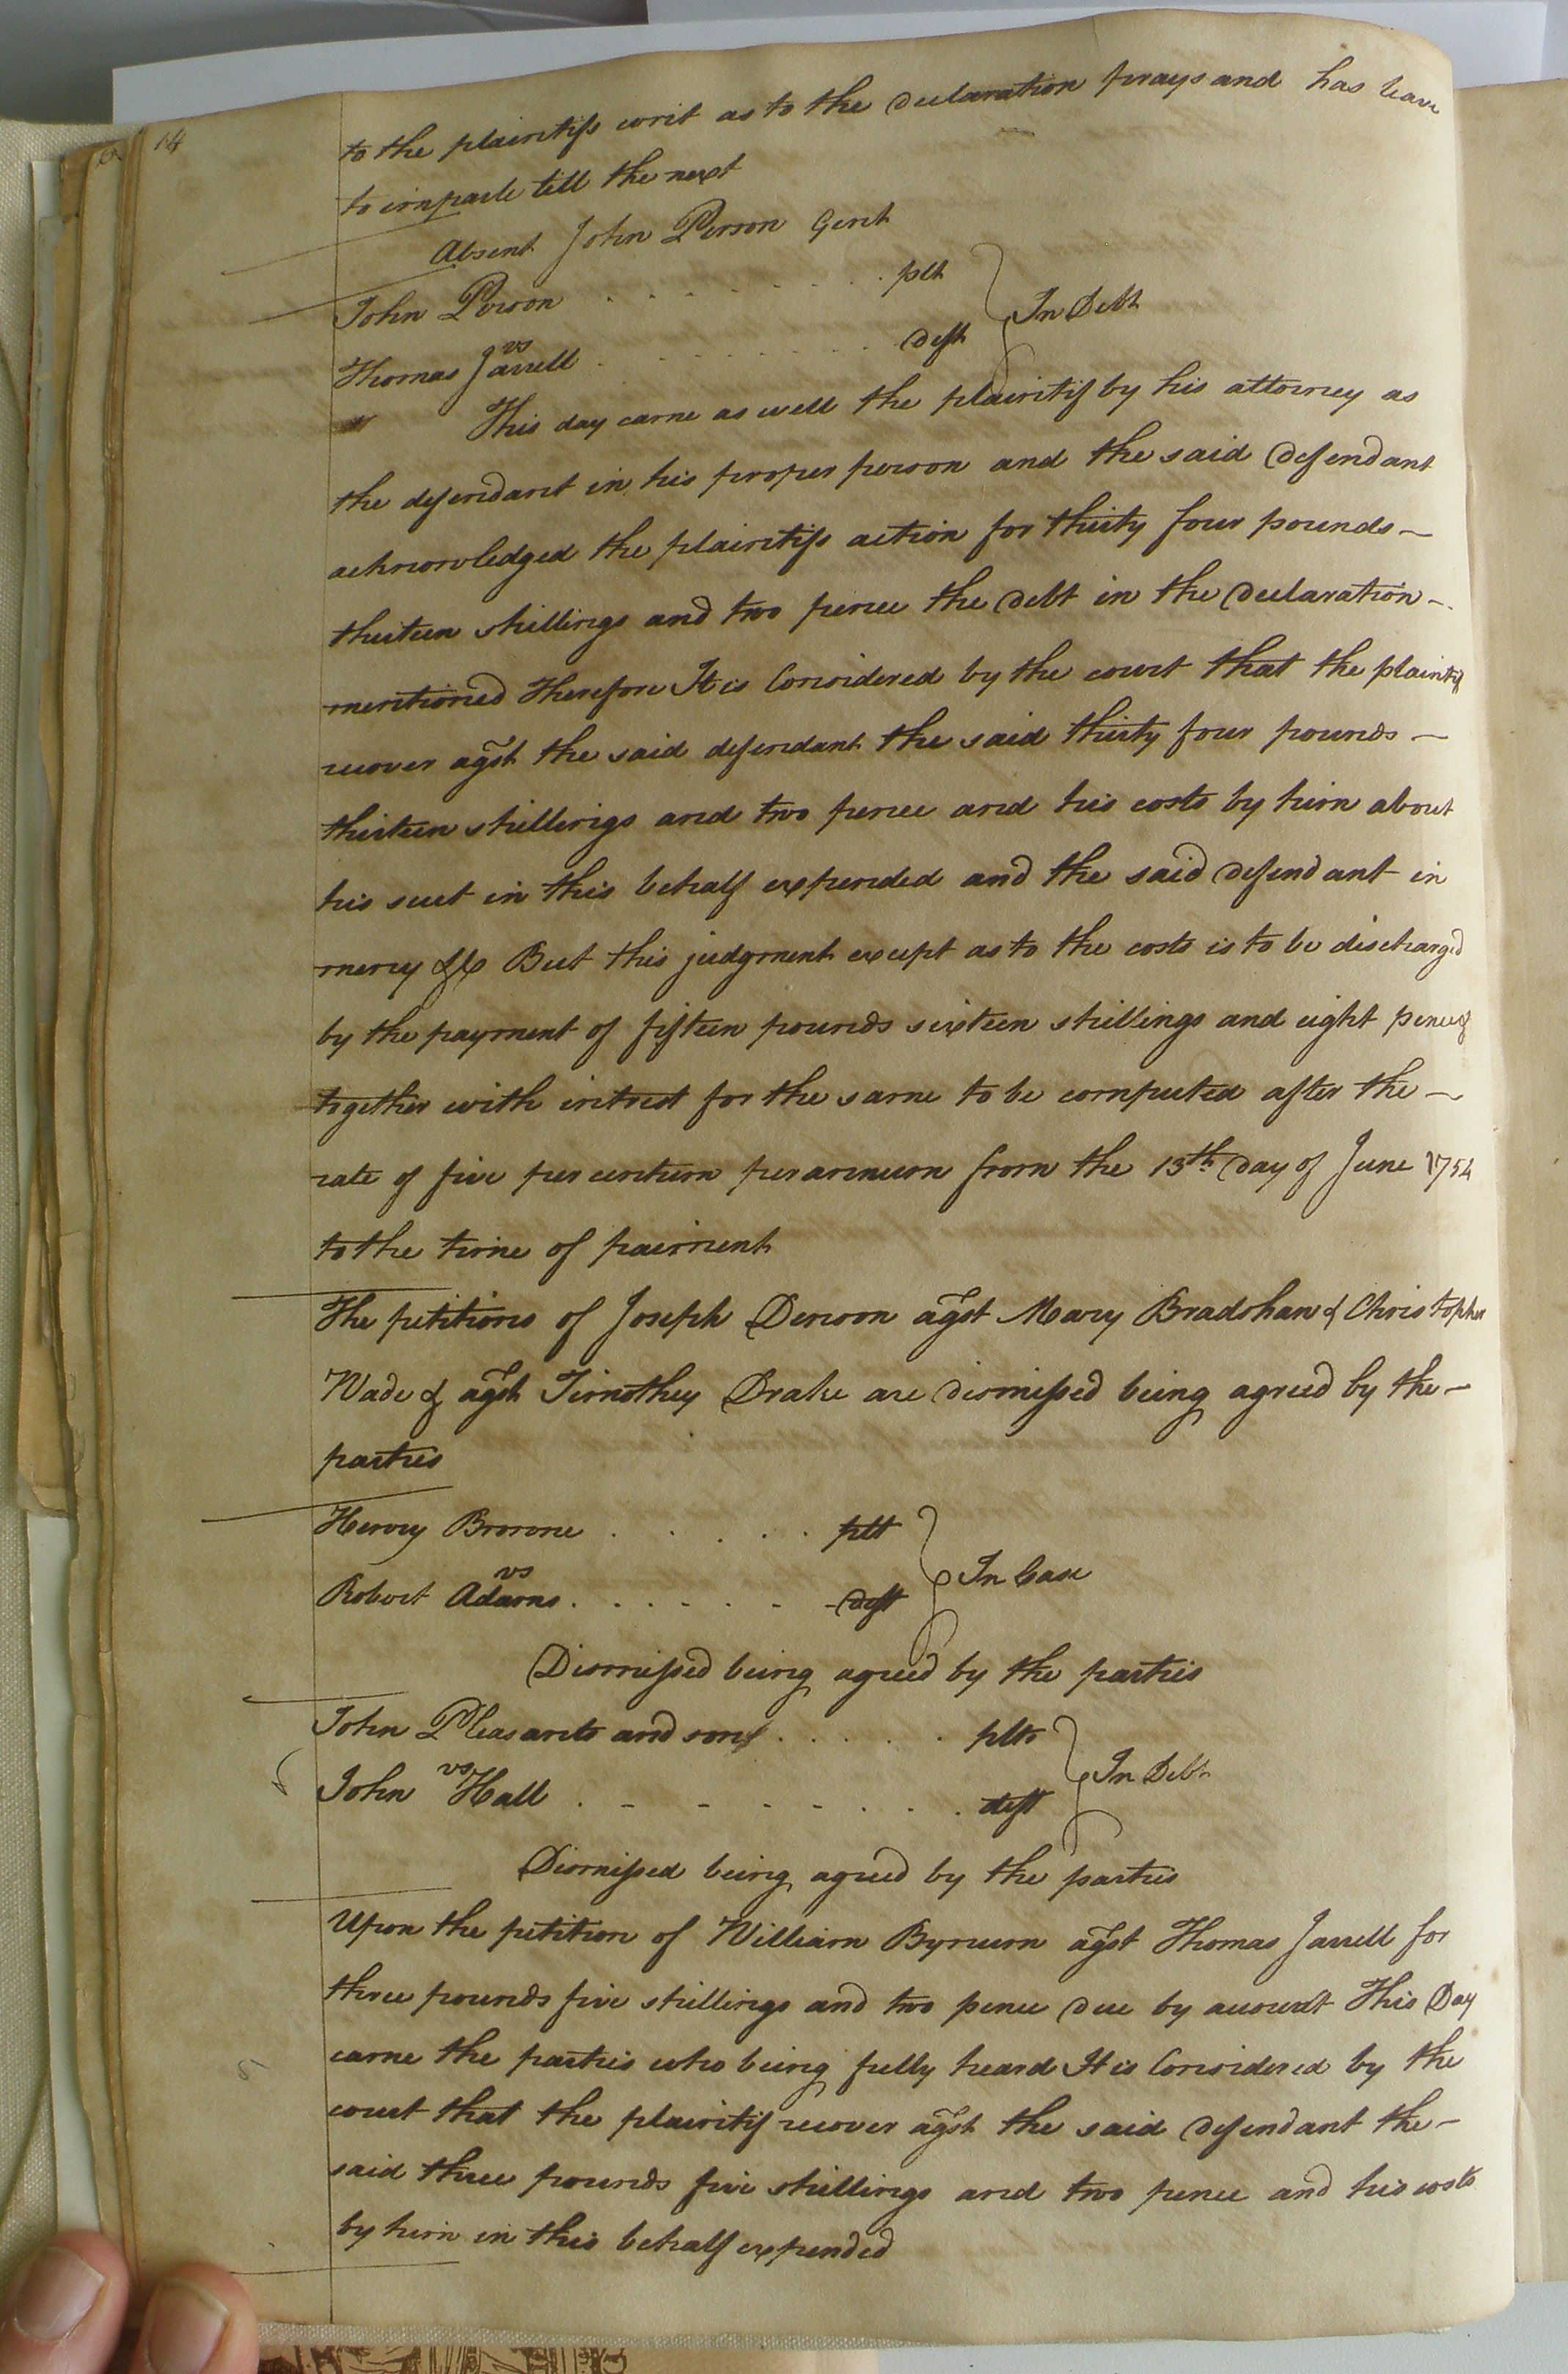 14
to the plaintifs writ as to the declaration prays and has leave
to imparle till the next
Absent John Person Gent
John Person . . . . . . . . plt } In Debt
vs
Thomas Jarrell . . . . . . . . deft
This day came as well the plaintif by his attorney as
the defendant in his proper person and the said defendant
acknowledged the plaintifs action for thirty four pounds –
thirteen shillings and two pence the debt in the declaration –
mentioned Therefore It is Considered by the court that the plaintif
recover agst the said defendant the said thirty four pounds –
thirteen shillings and two pence and his costs by him about
his suit in this behalf expended and the said defendant in
mercy &c But this judgment except as to the costs is to be discharged
by the payment of fifteen pounds sixteen shillings and eight pence
together with intrest for the same to be computed after the –
rate of five per centum per annum from the 15th day of June 1754
to the time of paiment
The petitions of Joseph Denson agst Mary Bradshaw & Christopher
Wade & agst Timothey Drake are dismissed being agreed by the –
parties
Henry Browne . . . . . plt } In Case
vs
Robert Adams . . . . . . deft
Dismissed being agreed by the parties
John Pleasants and sons . . . . . plts } In Debt
vs
John Hall . . . . . . . . deft
Dismissed being agreed by the parties
Upon the petition of William Bynum agst Thomas Jarrell for
three pounds five shillings and two pence due by account This Day
came the parties who being fully heard It is Considered by the
court that the plaintif recover agst the said defendant the –
said three pounds five shillings and two pence and his costs
by him in this behalf expended